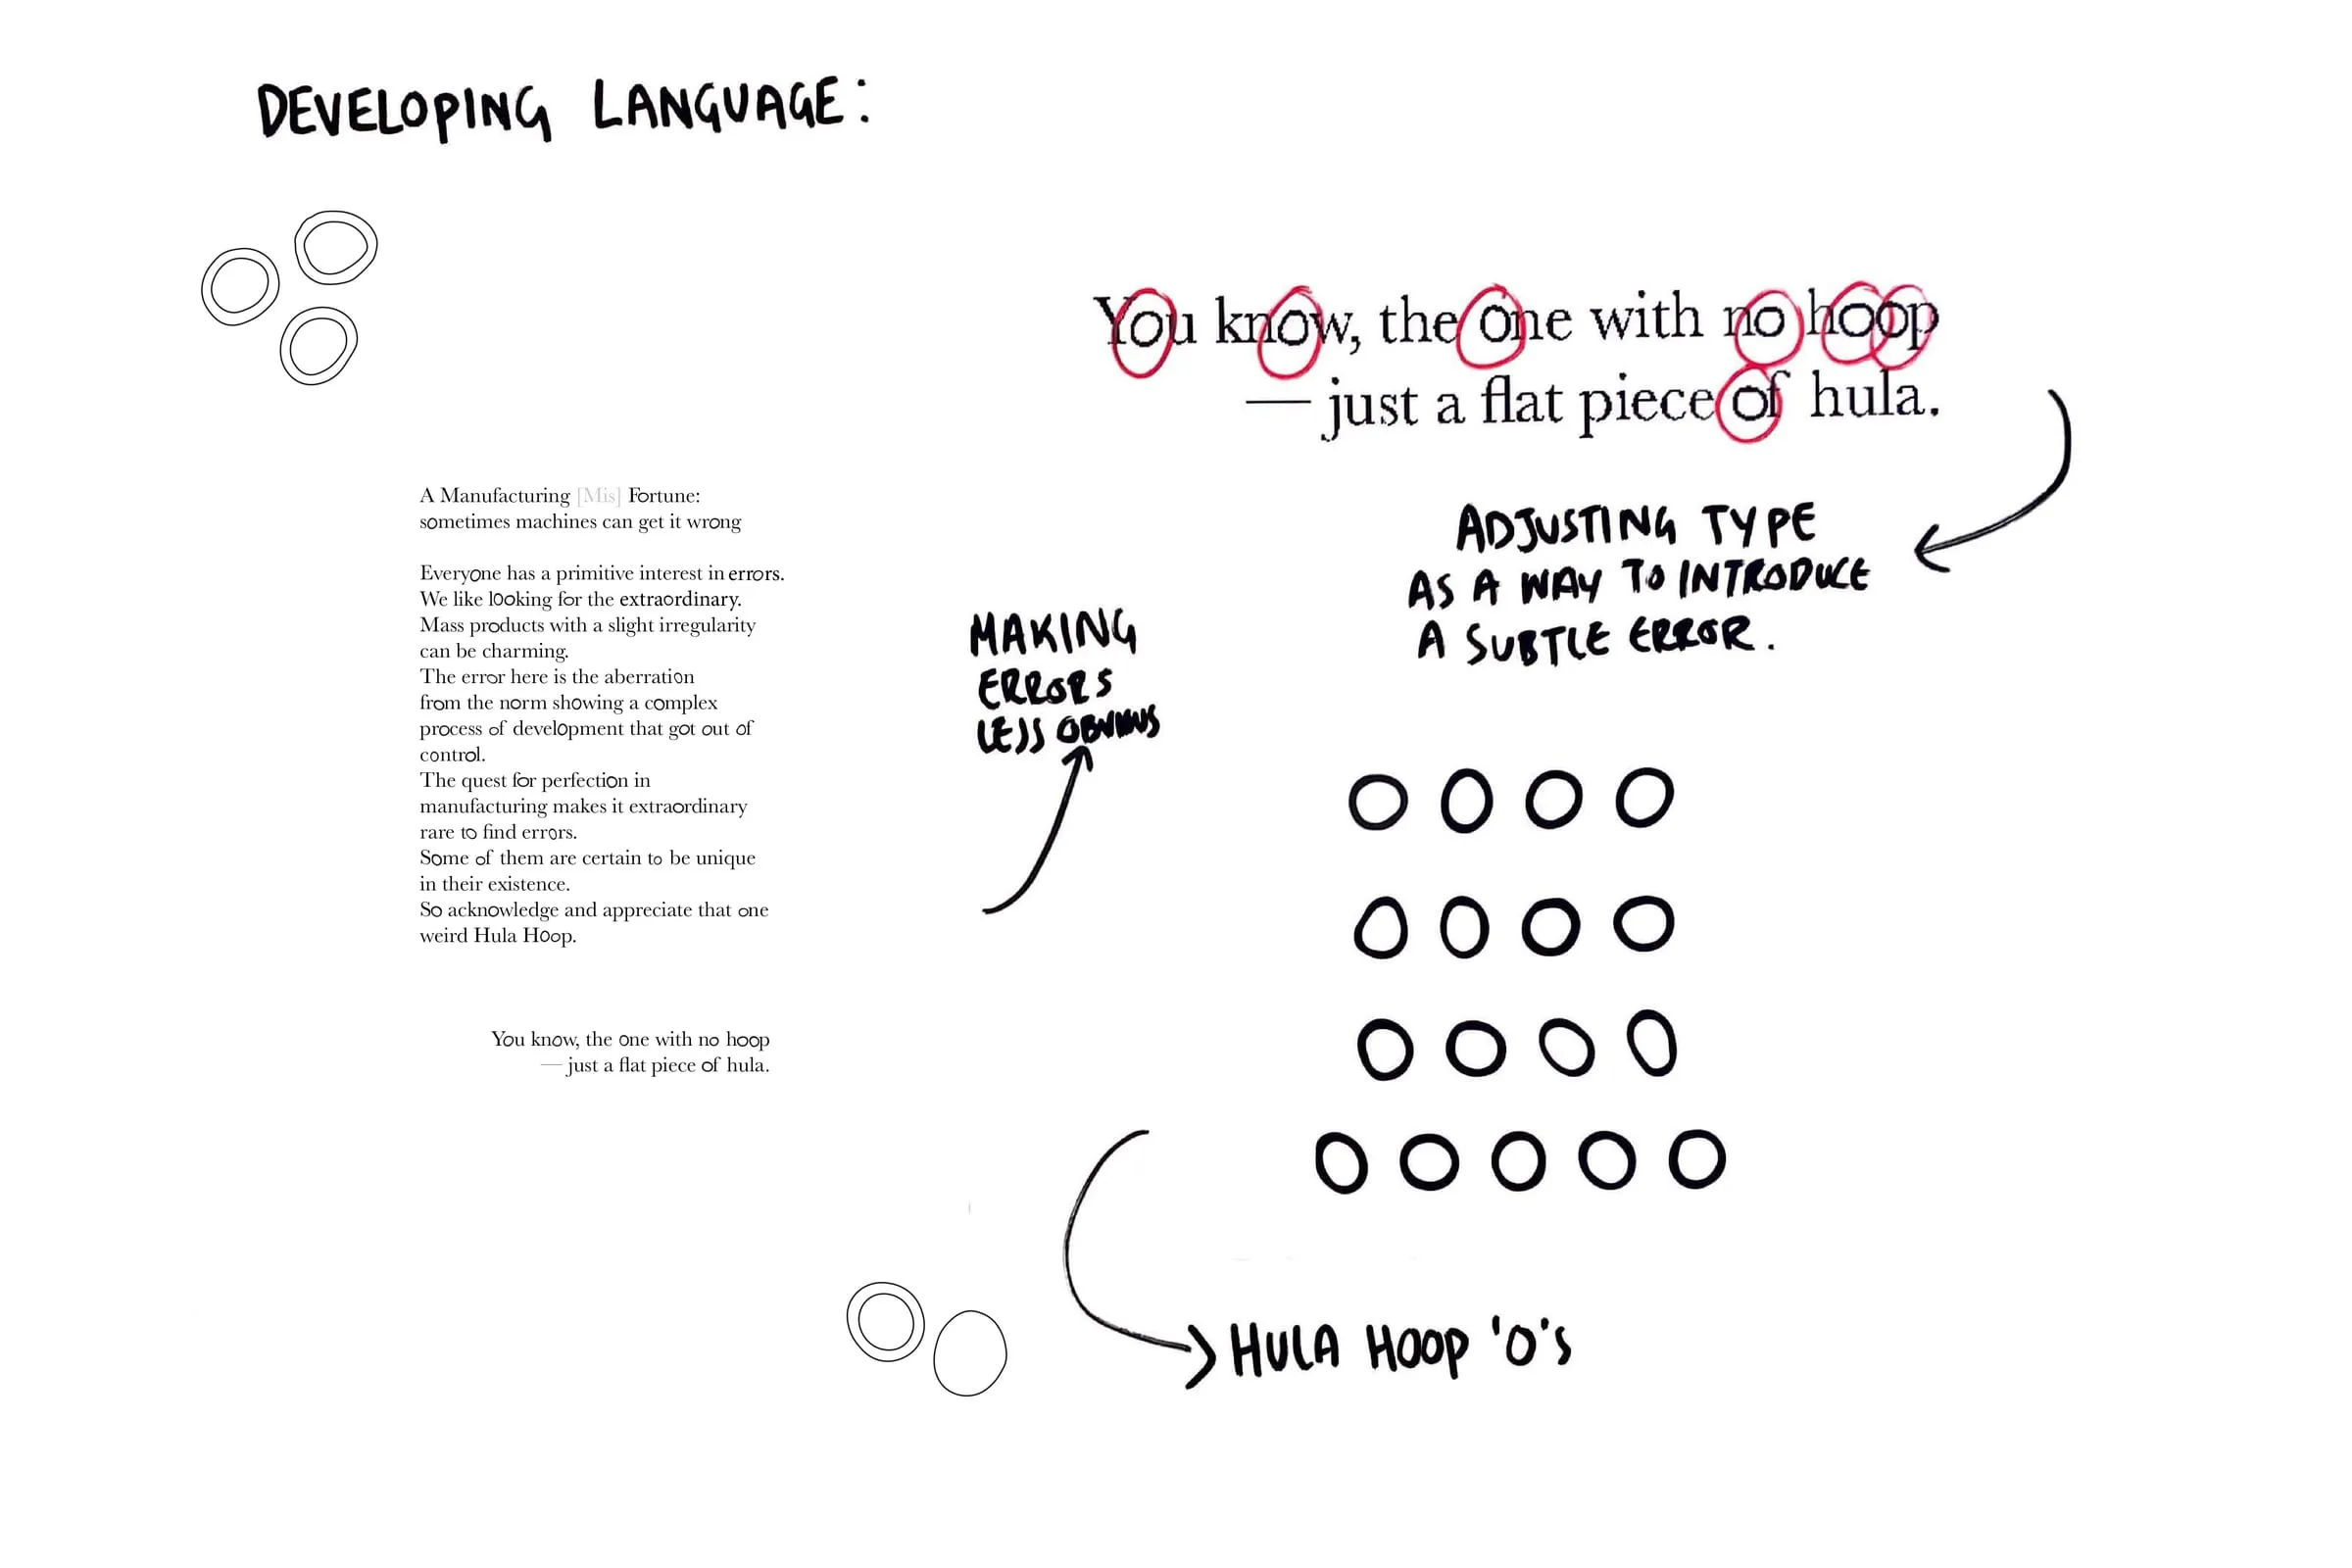 DEVELOPING LANGUAGE:
You know, the one with no hoop
— just a flat piece of hula.
ADJUSTING TYPE
AS A WAY TO INTRODUCE
A SUBTLE ERROR.
A Manufacturing [Mis] Fortune:
sometimes machines can get it wrong
Everyone has a primitive interest in errors.
We like looking for the extraordinary.
Mass products with a slight irregularity
can be charming.
The error here is the aberration
from the norm showing a complex
process of development that got out of
control.
The quest for perfection in
manufacturing makes it extraordinary
rare to find errors.
Some of them are certain to be unique
in their existence.
So acknowledge and appreciate that one
weird Hula Hoop.
You know, the one with no hoop
— just a flat piece of hula.
MAKING
ERRORS
LESS OBVIOUS
O O O O
O O O O
O O O O
O O O O O
HULA HOOP 'O's